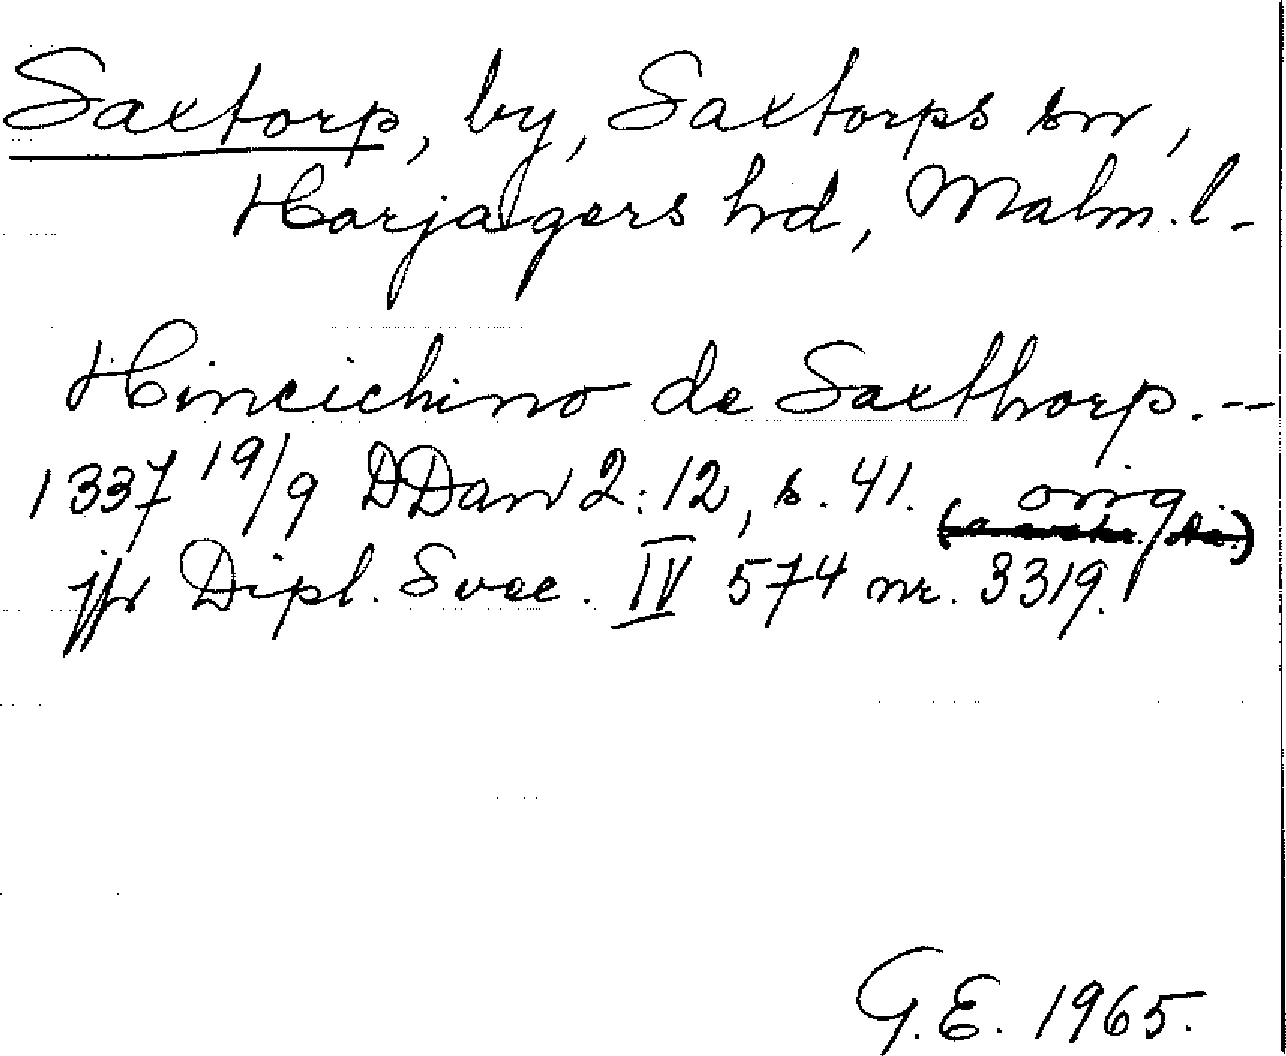 Saxtorp, by, Saxtorps sn,
Harjagers hd, Malm. l.
Hincichino de Saxthorp. --
1337 19/9 DDan 2:12, s. 41. orig
jfr Dipl. Svec. IV 574 nr. 3319.
G.E. 1965.